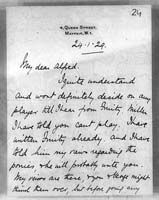 24
4, Queen Street,
Mayfair, W.1.
24-1-29.
My dear Alfred.
I quite understand
and wont definitely decide on any
player till I hear from Guity. Miller
I have told you cant play. I have
written Guity already, and I have
told him my views regarding the
ponies who will probably write you
My views are these, & you & George might
think them over, but before going any